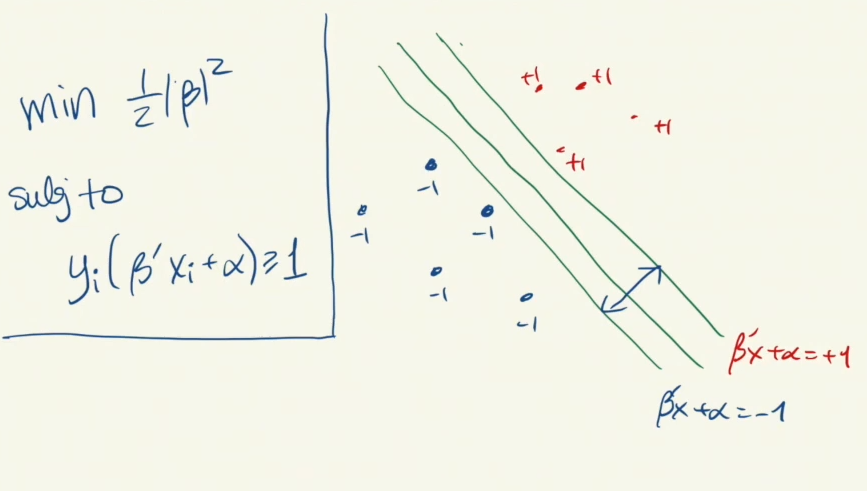 min ½|β|²
subj to
yᵢ(β′xᵢ+α)⩾1
+1 +1
+1
+1
-1
-1 -1
-1
-1
β′x+α=+1
β′x+α=-1